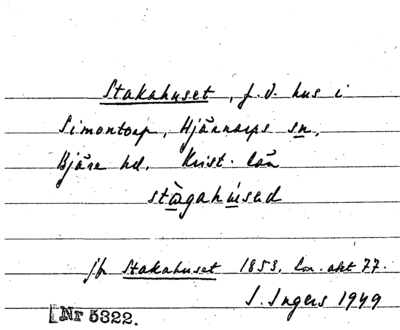 Stakahuset, f.d. hus i
Simontorp, Hjärnarps sn,
Bjäre hd. Krist. län
stàgahúsed
jfr Stakahuset 1853. lm. akt 77.
I. Ingers 1949
Nr 5322.